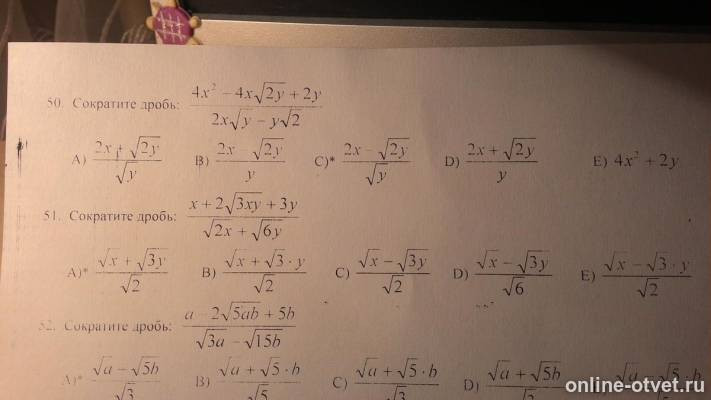 50. Сократите дробь: \frac{4x^2 - 4x\sqrt{2y} + 2y}{2x\sqrt{y} - y\sqrt{2}}
A) \frac{2x + \sqrt{2y}}{\sqrt{y}} B) \frac{2x - \sqrt{2y}}{y} C)* \frac{2x - \sqrt{2y}}{\sqrt{y}} D) \frac{2x + \sqrt{2y}}{y} E) 4x^2 + 2y
51. Сократите дробь: \frac{x + 2\sqrt{3xy} + 3y}{\sqrt{2x} + \sqrt{6y}}
A)* \frac{\sqrt{x} + \sqrt{3y}}{\sqrt{2}} B) \frac{\sqrt{x} + \sqrt{3} \cdot y}{\sqrt{2}} C) \frac{\sqrt{x} - \sqrt{3y}}{\sqrt{2}} D) \frac{\sqrt{x} - \sqrt{3y}}{\sqrt{6}} E) \frac{\sqrt{x} - \sqrt{3} \cdot y}{\sqrt{2}}
52. Сократите дробь: \frac{a - 2\sqrt{5ab} + 5b}{\sqrt{3a} - \sqrt{15b}}
A)* \frac{\sqrt{a} - \sqrt{5b}}{\sqrt{3}} B) \frac{\sqrt{a} + \sqrt{5} \cdot b}{\sqrt{5}} C) \frac{\sqrt{a} + \sqrt{5} \cdot b}{\sqrt{3}} D) \sqrt{a} + \sqrt{5b}
online-otvet.ru